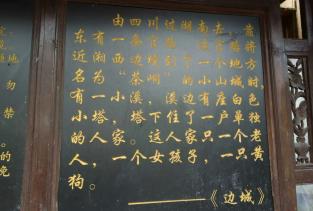 由四川过湖南去，靠
东有一条官路。这官路将
近湘西边境到了一个地方
名为“茶峒”的小山城时，
有一小溪，溪边有座白色
小塔，塔下住了一户单独
的人家。这人家只一个老
人，一个女孩子，一只黄
狗。
——《边城》
地
勿
禁
的
免